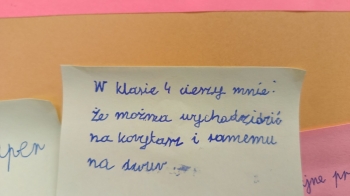 W klasie 4 cieszy mnie:
że można wychodzidzić
na korytarz i samemu
na
per
jne pr